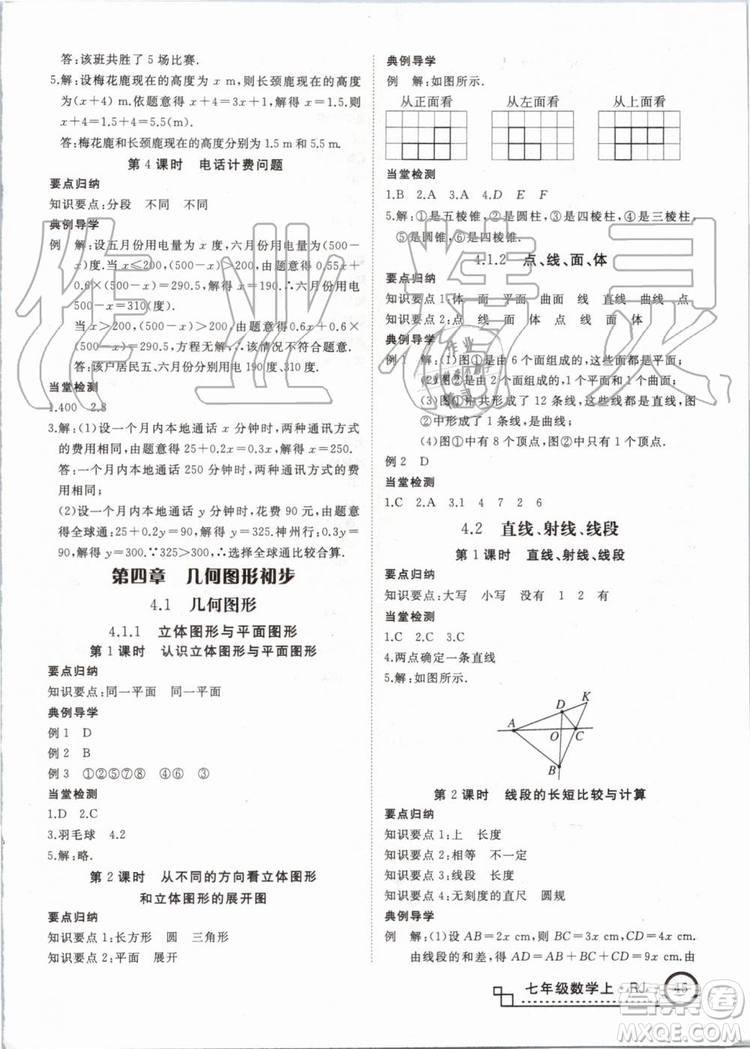 答:该班共胜了 5 场比赛.
5.解:设梅花鹿现在的高度为 x m,则长颈鹿现在的高度
为(x+4) m.依题意得 x+4=3x+1,解得 x=1.5.
所以 x+4=1.5+4=5.5(m).
答:梅花鹿和长颈鹿现在的高度分别为 1.5 m 和 5.5 m.
第 4 课时 电话计费问题
要点归纳
知识要点:分段 不同 不同
典例导学
例 解:设五月份用电量为 x 度,六月份用电量为(500-
x)度.当 x≤200,(500-x)>200,依题意得 0.55x+
0.6×(500-x)=290.5,解得 x=190.则六月份用电
500-x=310(度).
当 x>200,(500-x)>200,依题意得 0.6x+0.6×
(500-x)=290.5,方程无解,∴该情况不符合题意.
答:该户居民五、六月份分别用电 190 度、310 度.
当堂检测
1.400 2.8
3.解:(1)设一个月内本地通话 x 分钟时,两种通讯方式
的费用相同.依题意得 25+0.2x=0.3x,解得 x=250.
答:一个月内本地通话 250 分钟时,两种通讯方式的
费用相同.
(2)设一个月内本地通话 y 分钟时,花费 90 元,依题意
得全球通:25+0.2y=90,解得 y=325.神州行:0.3y=
90,解得 y=300.∵325>300,∴选择全球通比较合算.
第四章 几何图形初步
4.1 几何图形
4.1.1 立体图形与平面图形
第 1 课时 认识立体图形与平面图形
要点归纳
知识要点:同一平面 同一平面
典例导学
例 1 D
例 2 B
例 3 ①②⑤⑦⑧ ③④⑥
当堂检测
1.D 2.C
3.羽毛球 4.2
5.解:略.
第 2 课时 从不同的方向看立体图形
和立体图形的展开图
要点归纳
知识要点 1:长方形 圆 三角形
知识要点 2:平面 展开图
典例导学
例 解:如图所示.
从正面看 从左面看 从上面看
当堂检测
1.B 2.A 3.A 4.D E F
5.解:①是五棱锥,②是圆柱,③是四棱柱,④是三棱柱,
⑤是圆锥,⑥是四棱锥.
4.1.2 点、线、面、体
要点归纳
知识要点 1:体 面 平面 曲面 线 直线 曲线 点
知识要点 2:点 线 面 体 点线 线面 面体
典例导学
例 1 解:(1)图①是由 6 个面组成的,图②是由 5 个面
组成的,它们都是平的.
(3)图①中共形成了 12 条线,这些线都是直的,图
②中形成了 9 条线,是直线.
(4)图①中有 8 个顶点,图②中有 5 个顶点.
例 2 D
当堂检测
1.C 2.A 3.1 4 7 2 6
4.2 直线、射线、线段
第 1 课时 直线、射线、线段
要点归纳
知识要点:大写 小写 没有 1 2 有
当堂检测
1.C 2.C 3.C
4.两点确定一条直线
5.解:如图所示.
D K
A O C
B
第 2 课时 线段的长短比较与计算
要点归纳
知识要点 1:上 长度
知识要点 2:相等 不一定
知识要点 3:线段 长度
知识要点 4:无刻度的直尺 圆规
典例导学
例 解:(1)设 AB=2x cm,则 BC=3x cm,CD=4x cm.
由线段的和差,得 AD=AB+BC+CD=9x cm.由
七年级数学上·RJ 45
作业精灵
答案圈
MXQE.COM